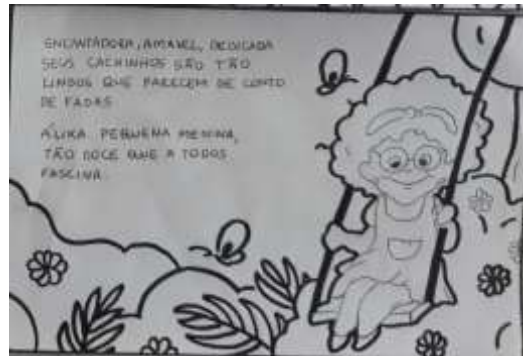 ENCANTADORA, AMAVEL, DEDICADA
SEUS CACHINHOS SÃO TÃO
LINDOS QUE PARECEM DE CONTO
DE FADAS
PEQUENA MENINA,
TÃO DOCE QUE A TODOS
FASCINA.